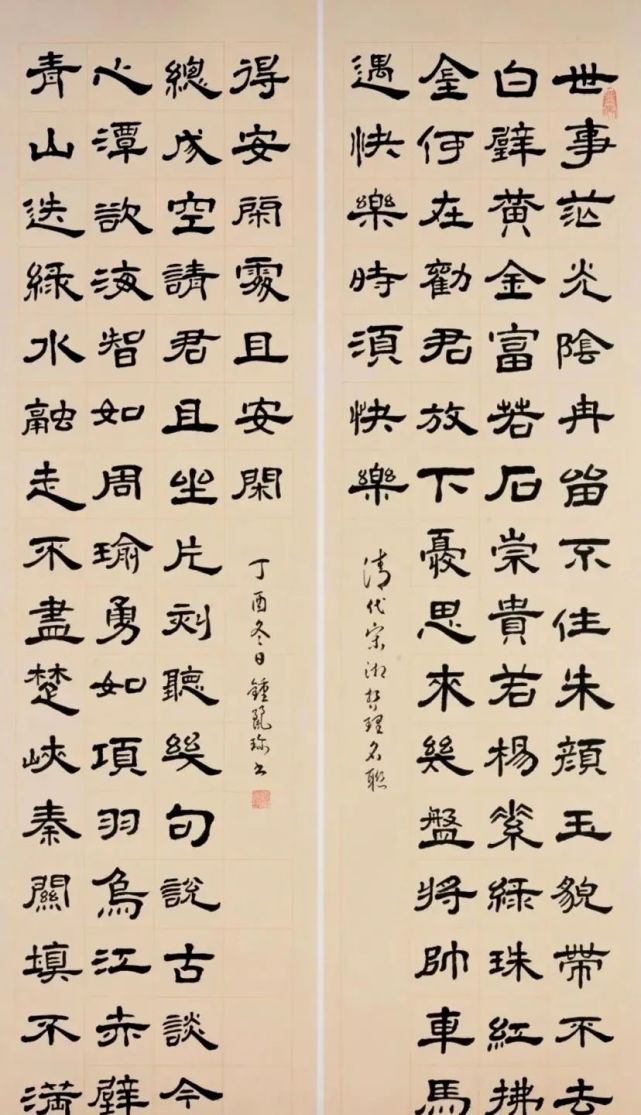 世事茫光陰冉留不住朱顏玉貌帶不去
白璧黃金富若石崇貴若楊素綠珠紅拂
全何在勸君放下憂思來幾盤將帥車馬
遇快樂時須快樂
清代宋湘哲理名聯
青山迭綠水融走不盡楚峽秦關填不滿
心潭欲海智如周瑜勇如項羽烏江赤壁
總成空請君且坐片刻聽幾句說古談今
得安閑處且安閑
丁酉冬日鍾麗珍書